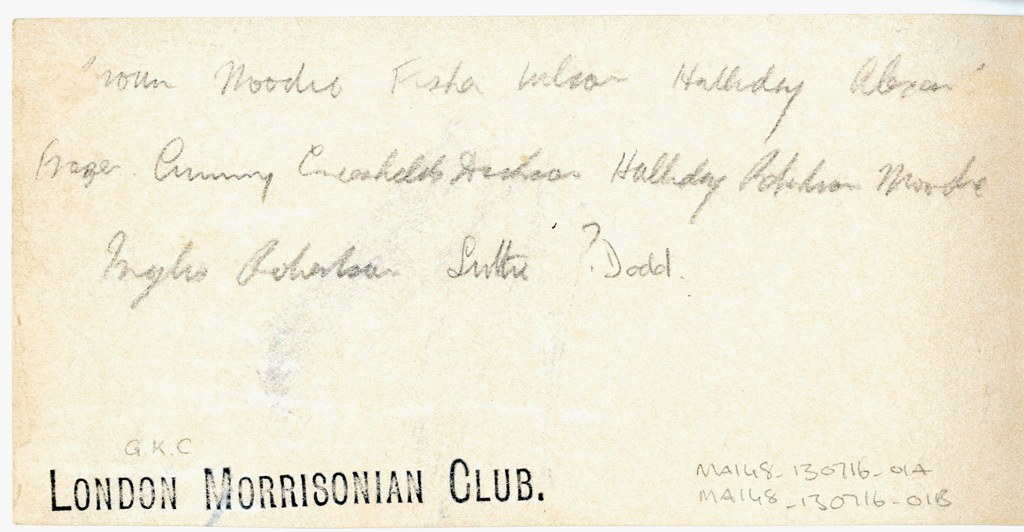 Moodie Fisher Wilson Halliday
Fraser Cumming Dickson Halliday Robertson Moodie
Inglis Robertson Suttie ? Dodd.
G.K.C
LONDON MORRISONIAN CLUB.
MA148-130716-01A
MA148-130716-01B